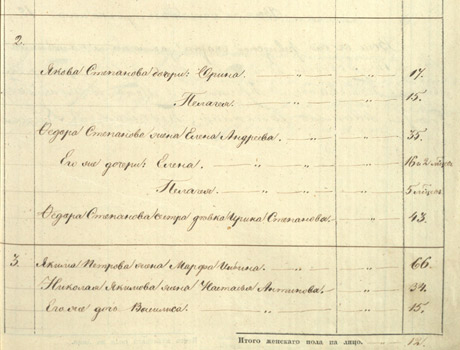 2.
Якова Степанова дочери: Ирина. " " 17.
Пелагея " " 15.
Ѳедора Степанова жена Елена Андреева. " " 35.
Его же дочери: Елена. " " " 16 и 2
Пелагея. " " " 5
Ѳедора Степанова сестра девка Ирина Степанова. " 43.
3. Якима Петрова жена Марфа " " 66.
Николая Якимова жена Настасья Антипова. " " 34.
Его же дочь Василиса " " 15.
Итого женскаго пола на лицо. 12.